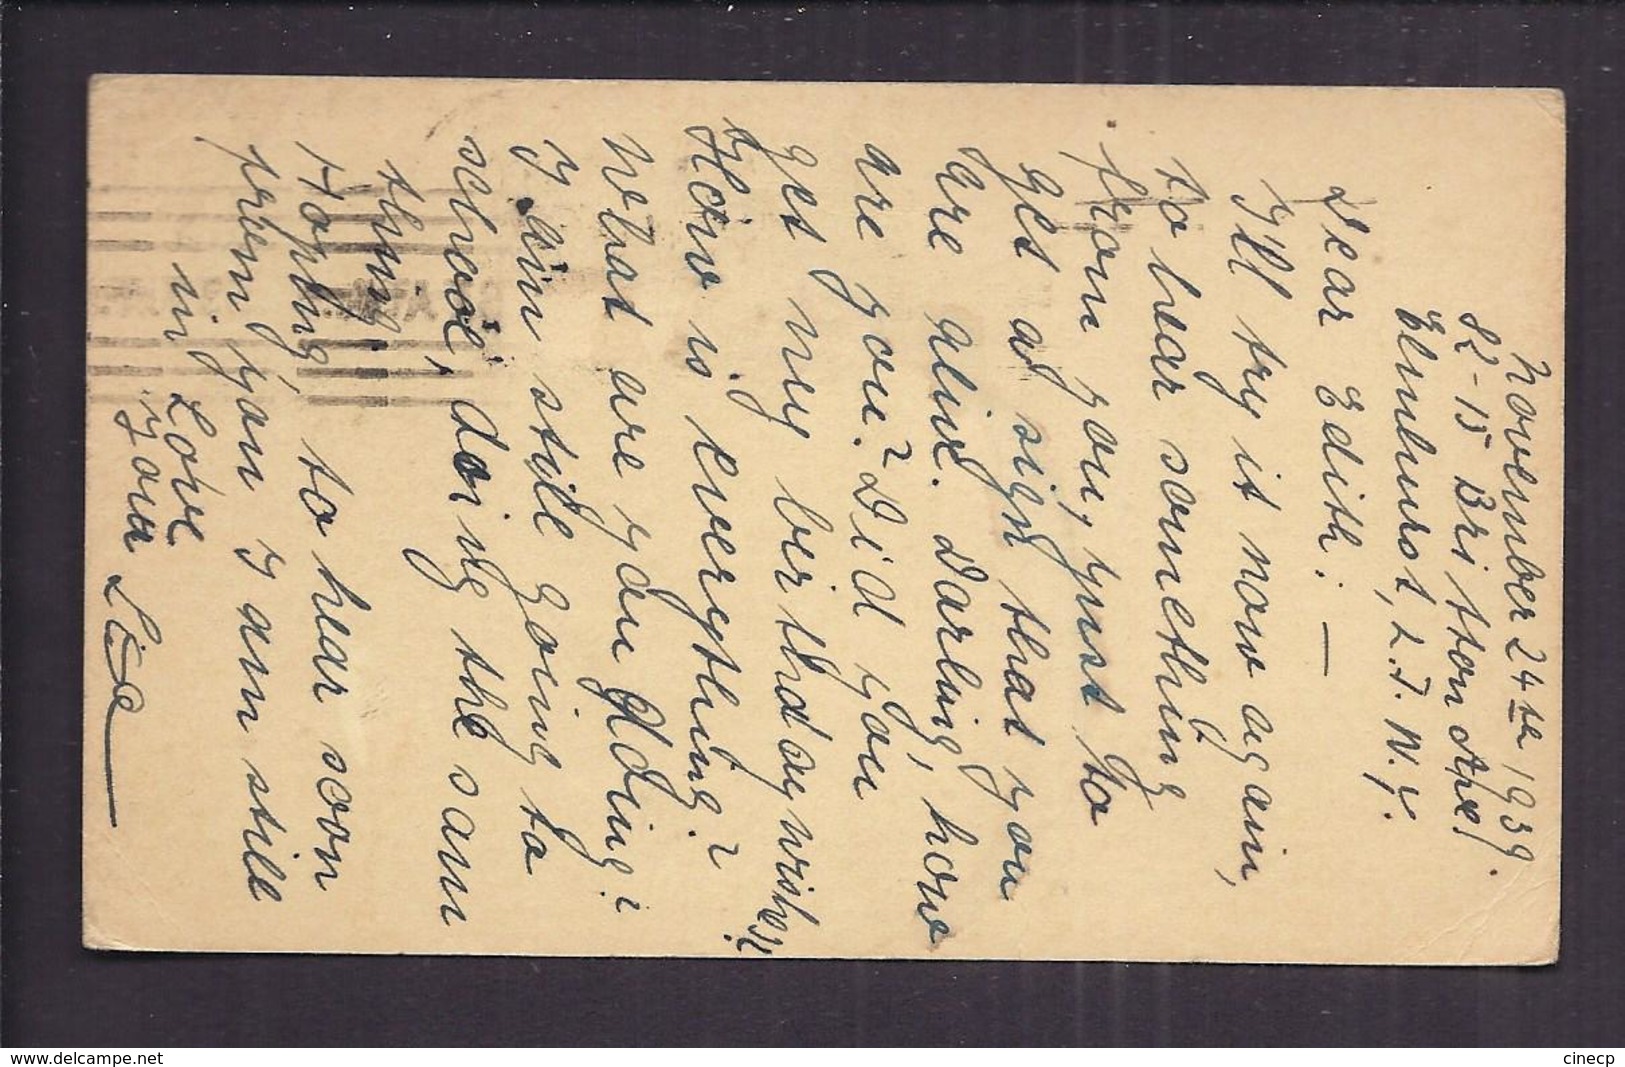 November 24th 1939.
82-15 Britton Ave!
Elmhurst, L. I. N. Y.
Dear Edith: —
I'll try it now again,
to hear something
from you, just to
get a sign that you
are alive. Darling, how
are you? Did you
get my birthday wishes?
How is everything?
What are you doing?
I am still going to
school, doing the sam
thing.
Hoping, to hear soon
from you I am still
in Love
your Lise
www.delcampe.net
cinecp